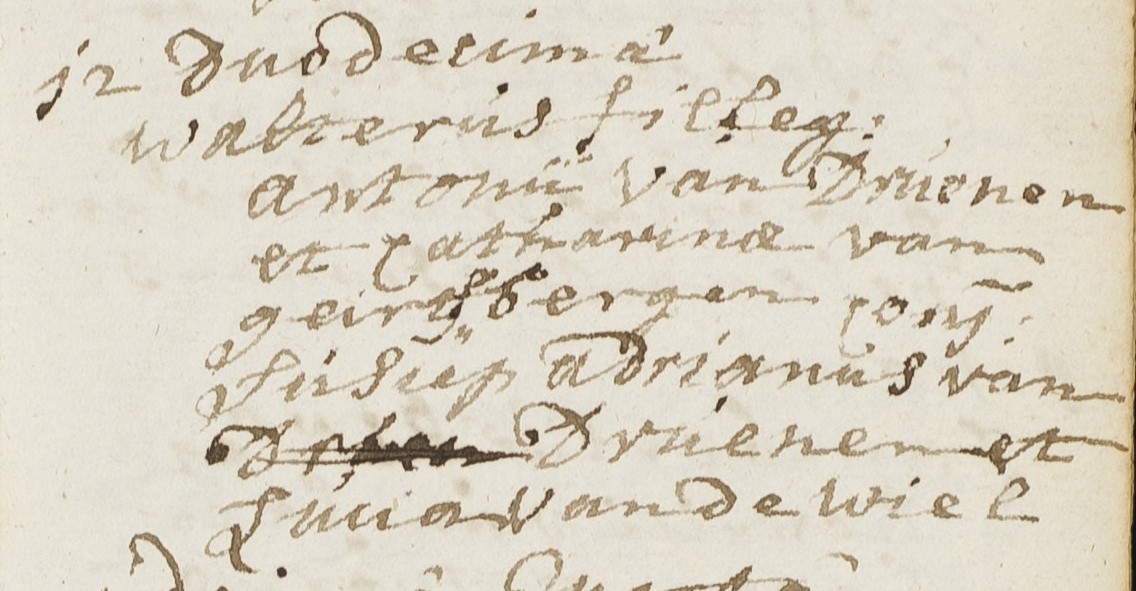 j2 Duodecima
Walterus fil: leg:
Antonii van Druenen
et Catharinæ van
geirsbergen conj:
Suscep Adrianus van
Druenen et
Lucia van de Wiel
Quarta